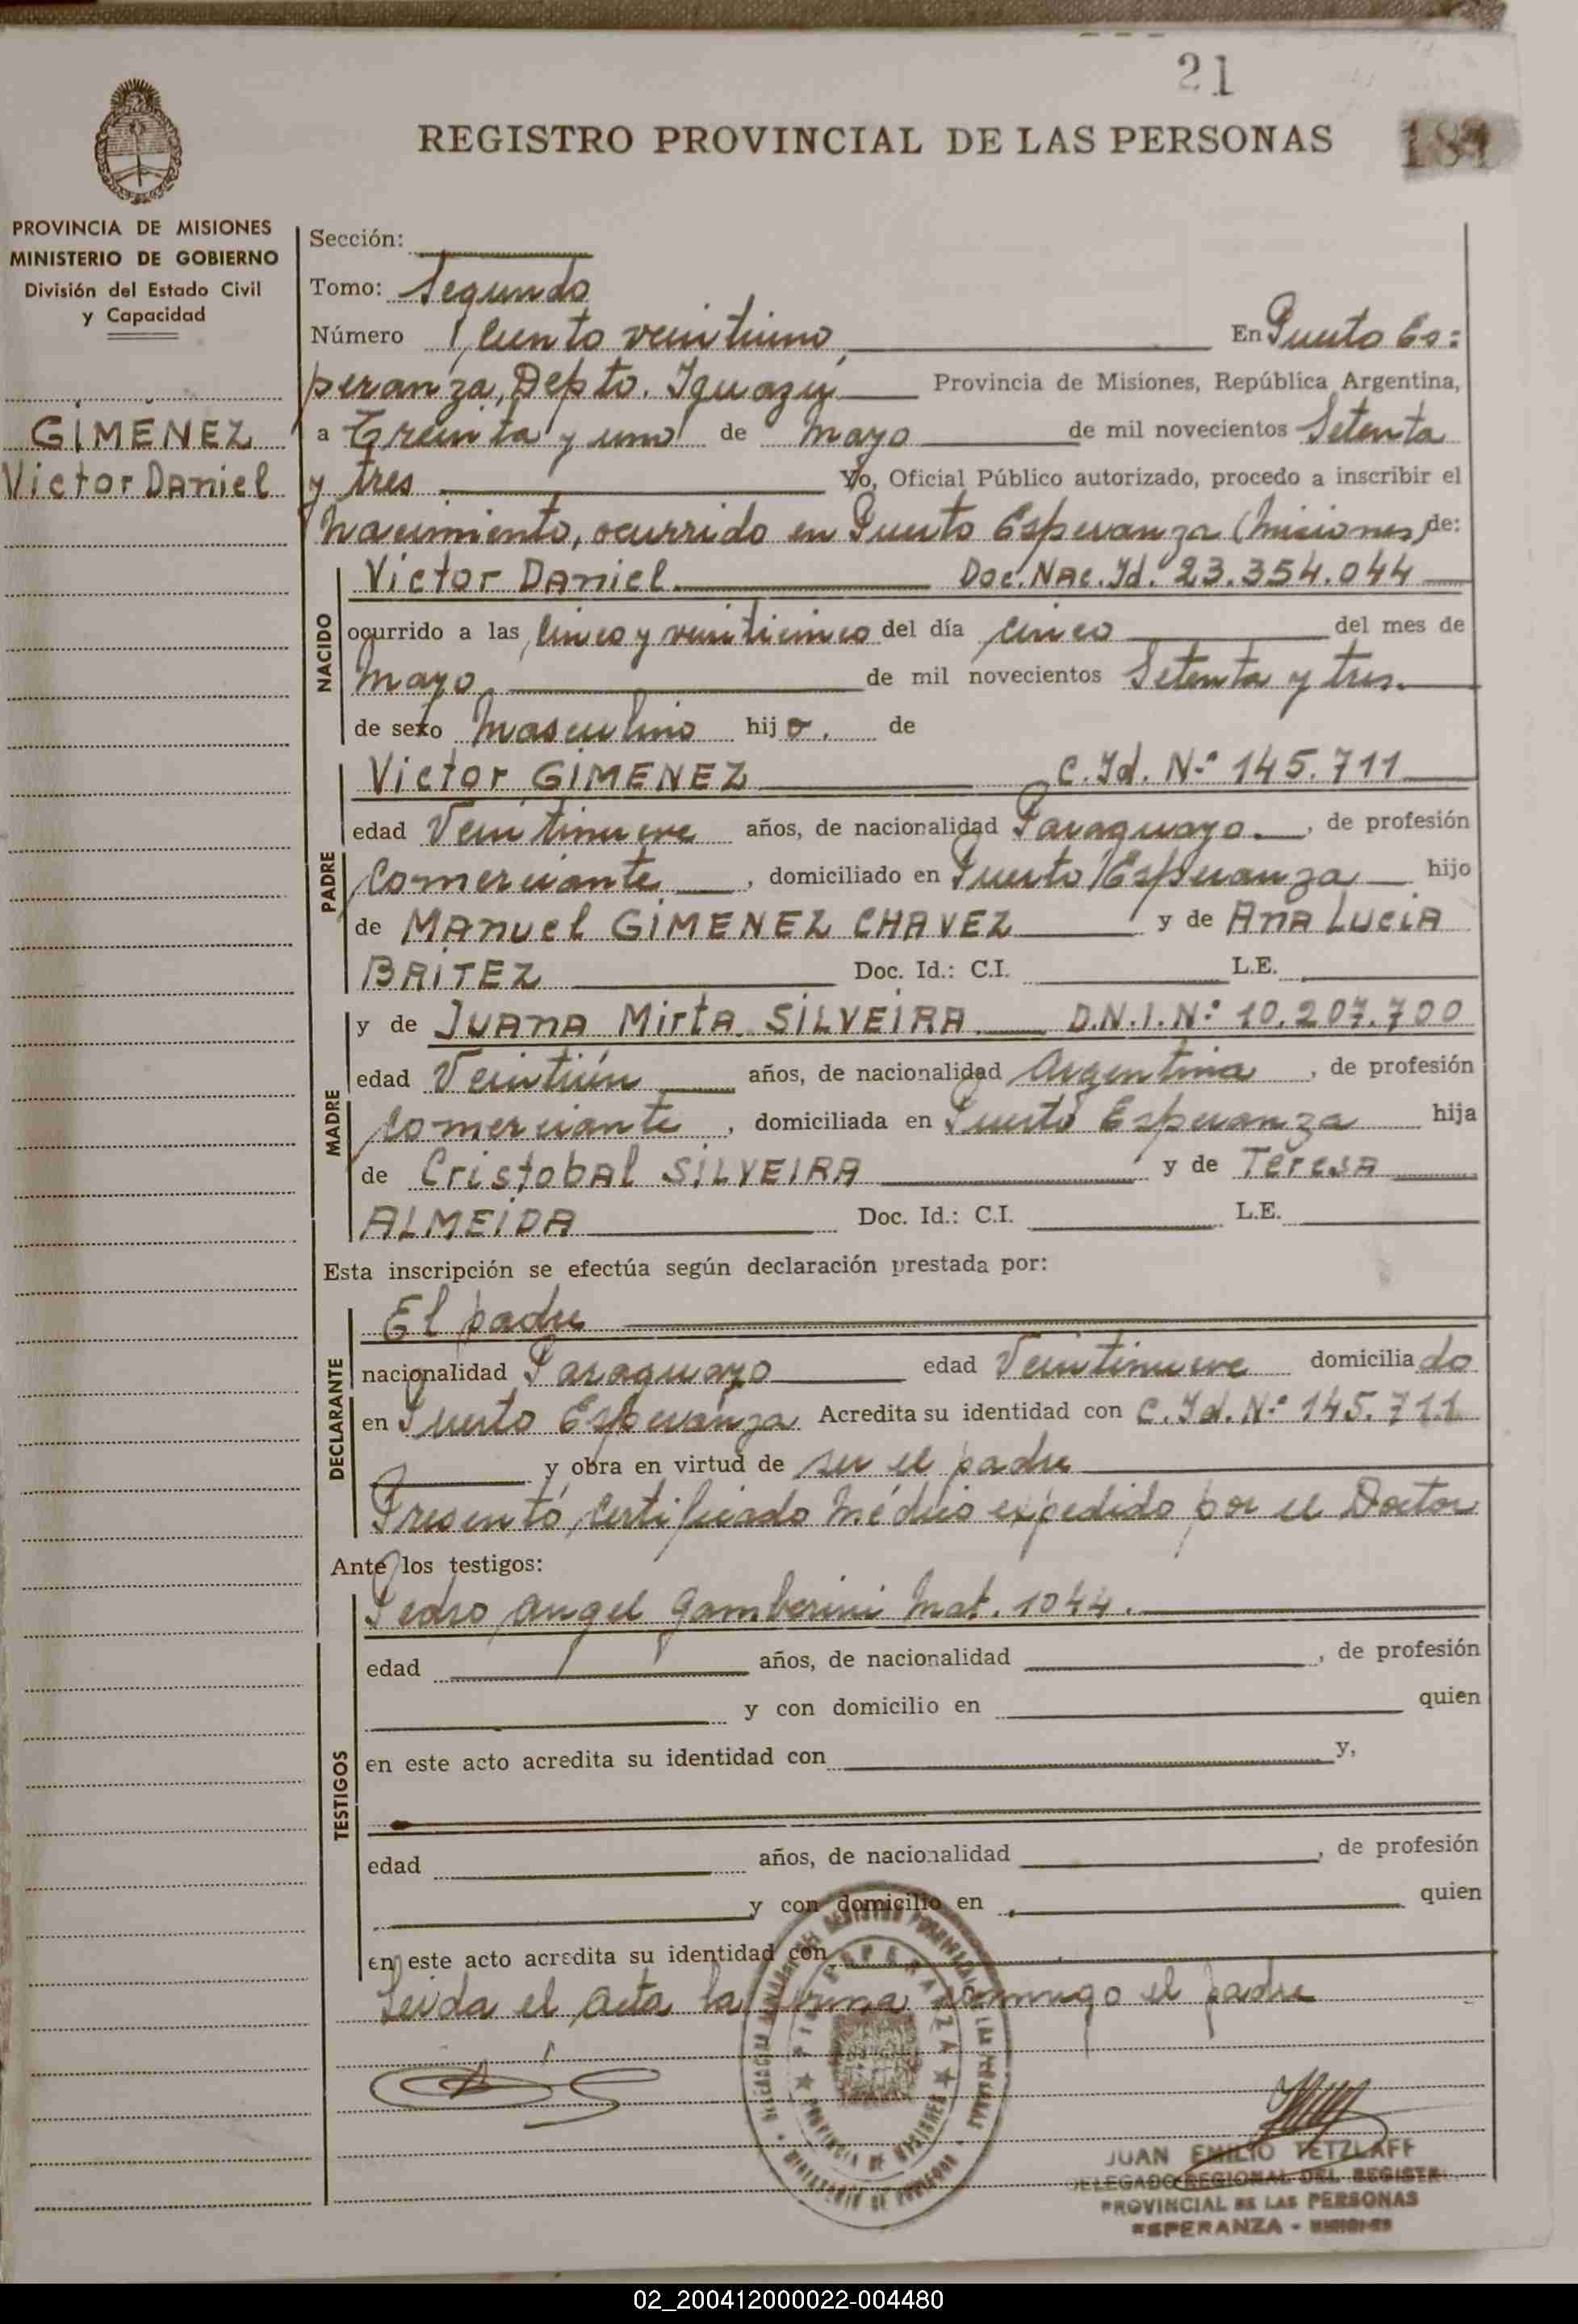 21
REGISTRO PROVINCIAL DE LAS PERSONAS
PROVINCIA DE MISIONES
MINISTERIO DE GOBIERNO
División del Estado Civil
y Capacidad
GIMENEZ
Victor Daniel
Sección:
Tomo: Segundo
Número Ciento veintiuno En Puerto Es=
peranza, Depto. Iguazú Provincia de Misiones, República Argentina,
a Treinta y uno de mayo de mil novecientos Setenta
y tres Yo, Oficial Público autorizado, procedo a inscribir el
Nacimiento, ocurrido en Puerto Esperanza (Misiones) de:
NACIDO
Victor Daniel Doc. Nac. Id. 23.354.044
ocurrido a las Cinco y veinticinco del día cinco del mes de
mayo de mil novecientos Setenta y tres.
de sexo Masculino hijo. de
PADRE
Victor GIMENEZ C. Id. Nº 145.711
edad Veintinueve años, de nacionalidad Paraguayo, de profesión
Comerciante, domiciliado en Puerto Esperanza hijo
de Manuel GIMENEZ CHAVEZ y de Ana Lucia
BRITEZ Doc. Id.: C.I. L.E.
MADRE
y de Juana Mirta SILVEIRA D.N.I. Nº 10.207.700
edad Veintiún años, de nacionalidad Argentina, de profesión
Comerciante, domiciliada en Puerto Esperanza hija
de Cristobal SILVEIRA y de Teresa
ALMEIDA Doc. Id.: C.I. L.E.
Esta inscripción se efectúa según declaración prestada por:
DECLARANTE
El padre
nacionalidad Paraguayo edad Veintinueve domiciliado
en Puerto Esperanza Acredita su identidad con C. Id. Nº 145.711
y obra en virtud de ser el padre
Presentó Certificado Médico expedido por el Doctor
Ante los testigos:
TESTIGOS
Pedro Angel Gamberini Mat. 1044.
edad años, de nacionalidad , de profesión
y con domicilio en quien
en este acto acredita su identidad con y,
edad años, de nacionalidad , de profesión
y con domicilio en quien
en este acto acredita su identidad con
Leida el acta la firma conmigo el padre
PROVINCIA DE MISIONES
JUAN EMILIO TETZLAFF
DELEGADO REGIONAL DEL REGISTR
PROVINCIAL DE LAS PERSONAS
ESPERANZA - MISIONES
02_200412000022-004480